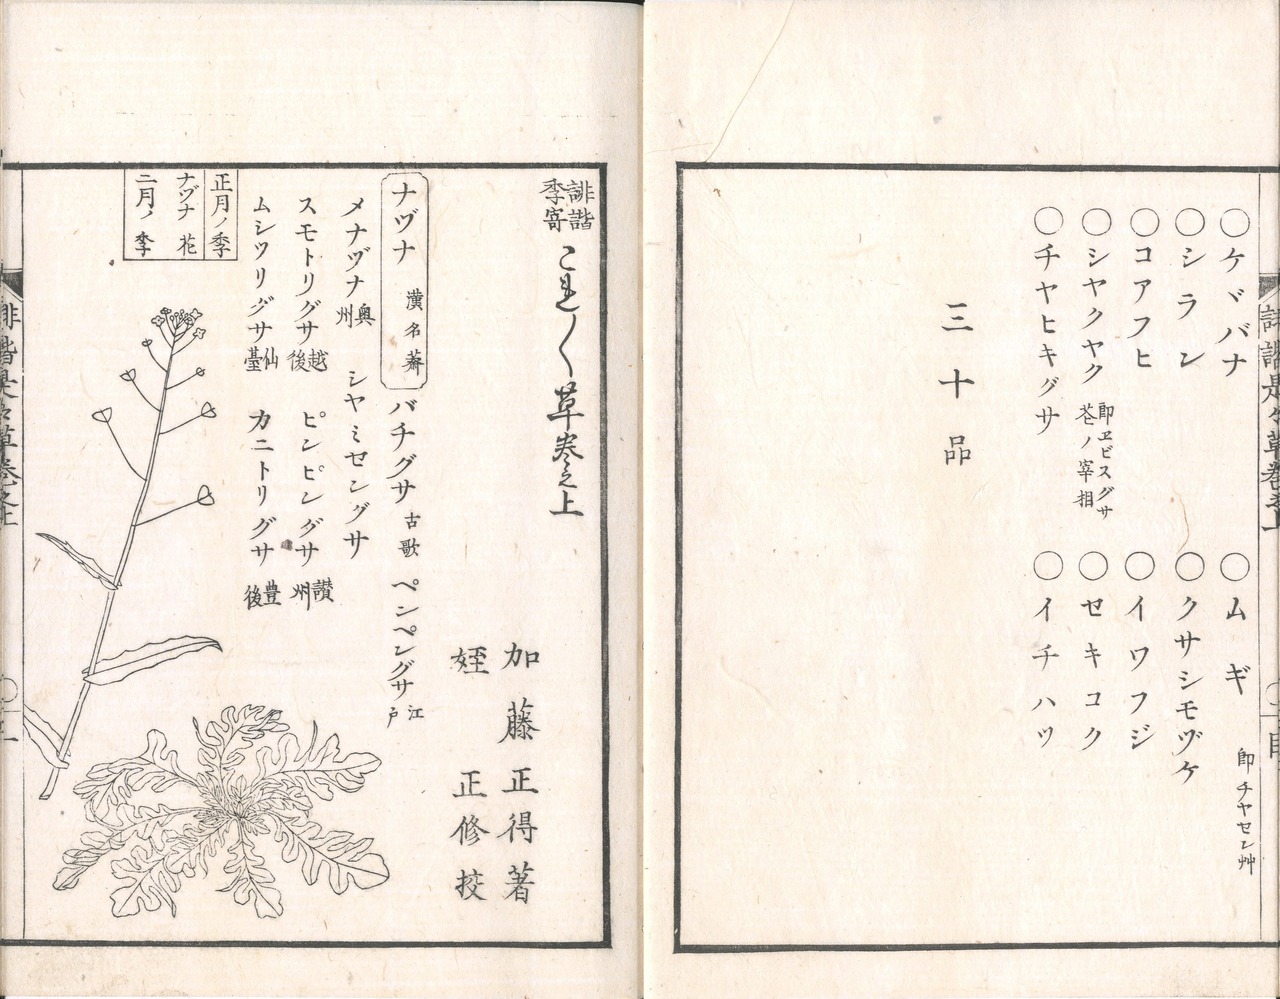 〇ケバナ
〇ムギ
〇シラン
〇クサシモヅケ 即チヤセン艸
〇コアフヒ
〇イワフジ
〇シヤクヤク 即ヱビスグサ 花ノ宰相
〇セキコク
〇チヤヒキグサ
〇イチハツ
三十品
誹諧季寄 これ〳〵草巻之上
加藤正得著
姪 正修挍
ナヅナ 漢名薺 バチグサ 古歌 ペンペングサ 江戸
メナヅナ 奥州 シヤミセングサ
スモトリグサ 越後 ピンピングサ 讃州
ムシツリグサ 仙臺 カニトリグサ 豊後
正月ノ季
ナヅナ花
二月ノ季